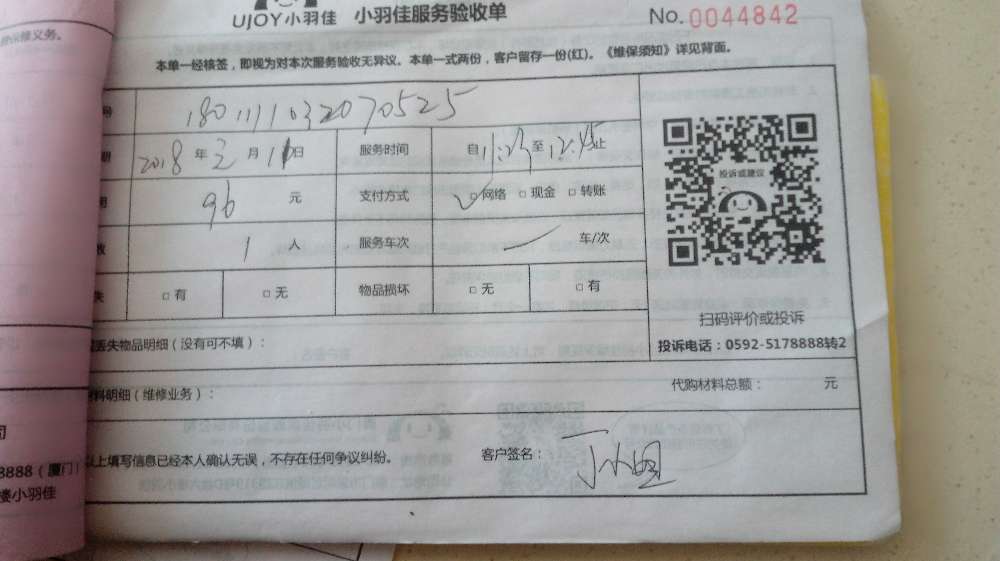 UJOY小羽佳 小羽佳服务验收单 No.0044842
修义务。
本单一经核签，即视为对本次服务验收无异议。本单一式两份，客户留存一份(红)。《维保须知》详见背面。
号 180111032070525
2018 年 元 月 日 服务时间 自 至 12:45 止
投诉或建议
96 元 支付方式 □网络 □现金 □转账
1 人 服务车次 一 车/次
失 □有 □无 物品损坏 □无 □有
扫码评价或投诉
丢失物品明细（没有可不填）： 投诉电话：0592-5178888转2
料明细（维修业务）： 代购材料总额： 元
司
8888（厦门） 以上填写信息已经本人确认无误，不存在任何争议纠纷。 客户签名：
楼小羽佳